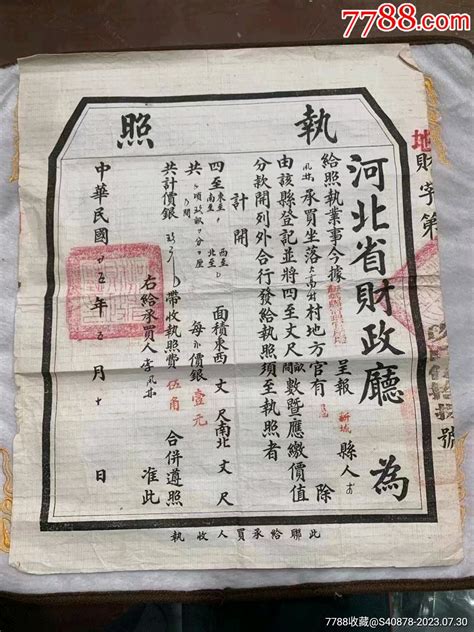 7788.com
執照
地
財字第
號
河北省財政廳 為
給照執業事今據 呈報 新城 縣人李
鳳岐 承買坐落大高村村地方官有 除
由該縣登記並將四至丈尺畝間數暨應繳價值
分款開列外合行發給執照須至執照者
計開
四至 東至 南至 西至 北至 面積東西 丈 尺南北 丈 尺
共 項 畝 分 厘 每 價銀 壹元
共計價銀 帶收執照費 伍角 合併遵照
准此
右給承買人李鳳
中華民國 廿五年 五月 十 日
此聯給承買人收執
7788收藏@S40878-2023.07.30